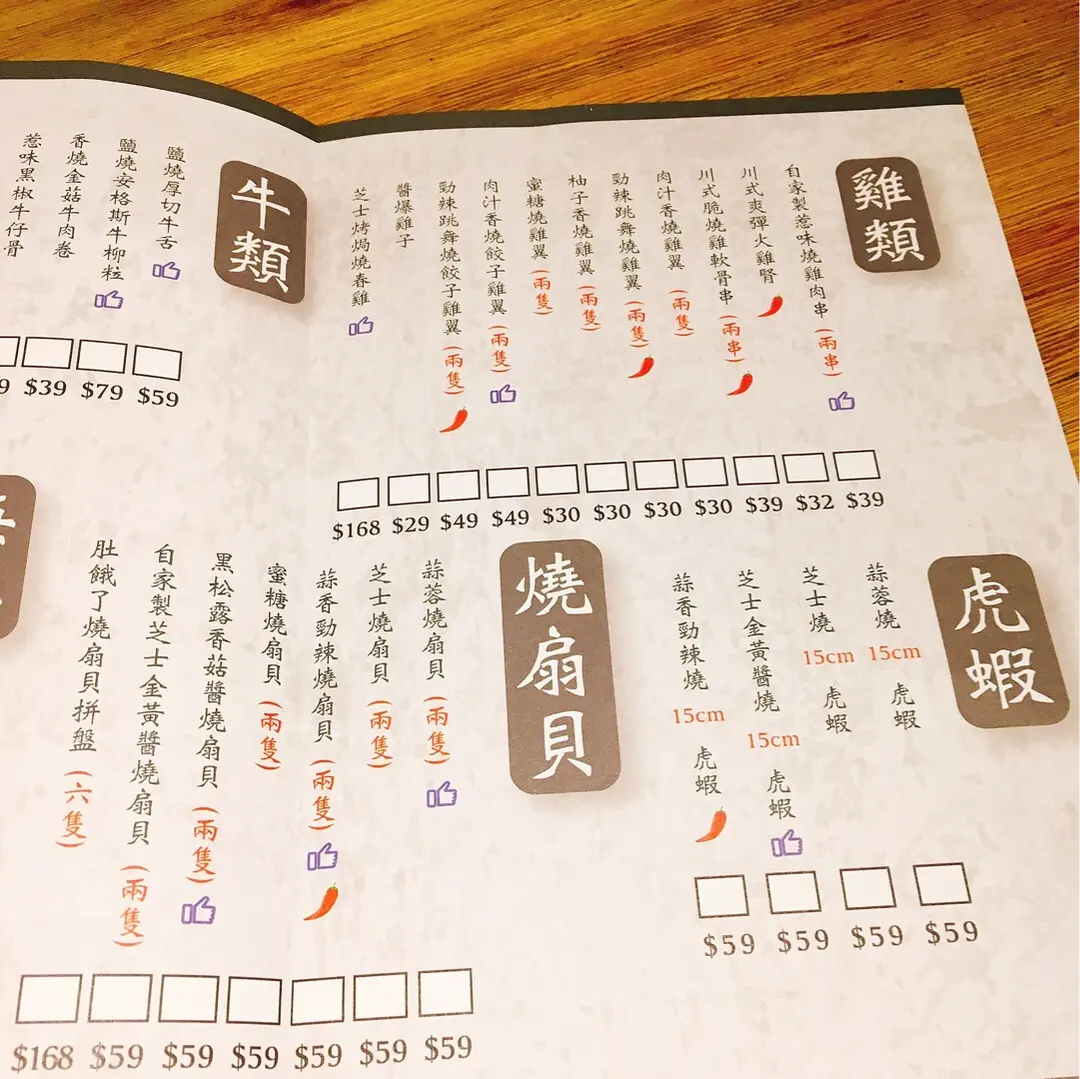 雞類
自家製惹味燒雞肉串(兩串)
川式爽彈火雞腎
川式脆燒雞軟骨串(兩串)
肉汁香燒雞翼(兩隻)
勁辣跳舞燒雞翼(兩隻)
柚子香燒雞翼(兩隻)
蜜糖燒雞翼(兩隻)
肉汁香燒餃子雞翼(兩隻)
勁辣跳舞燒餃子雞翼(兩隻)
醬爆雞子
芝士烤焗燒春雞
$168 $29 $49 $49 $30 $30 $30 $30 $39 $32 $39
牛類
鹽燒厚切牛舌
鹽燒安格斯牛柳粒
香燒金菇牛肉卷
惹味黑椒牛仔骨
9 $39 $79 $59
虎蝦
蒜蓉燒15cm虎蝦
芝士燒15cm虎蝦
芝士金黃醬燒15cm虎蝦
蒜香勁辣燒15cm虎蝦
$59 $59 $59 $59
燒扇貝
蒜蓉燒扇貝(兩隻)
芝士燒扇貝(兩隻)
蒜香勁辣燒扇貝(兩隻)
蜜糖燒扇貝(兩隻)
黑松露香菇醬燒扇貝(兩隻)
自家製芝士金黃醬燒扇貝(兩隻)
肚餓了燒扇貝拼盤(六隻)
$168 $59 $59 $59 $59 $59 $59